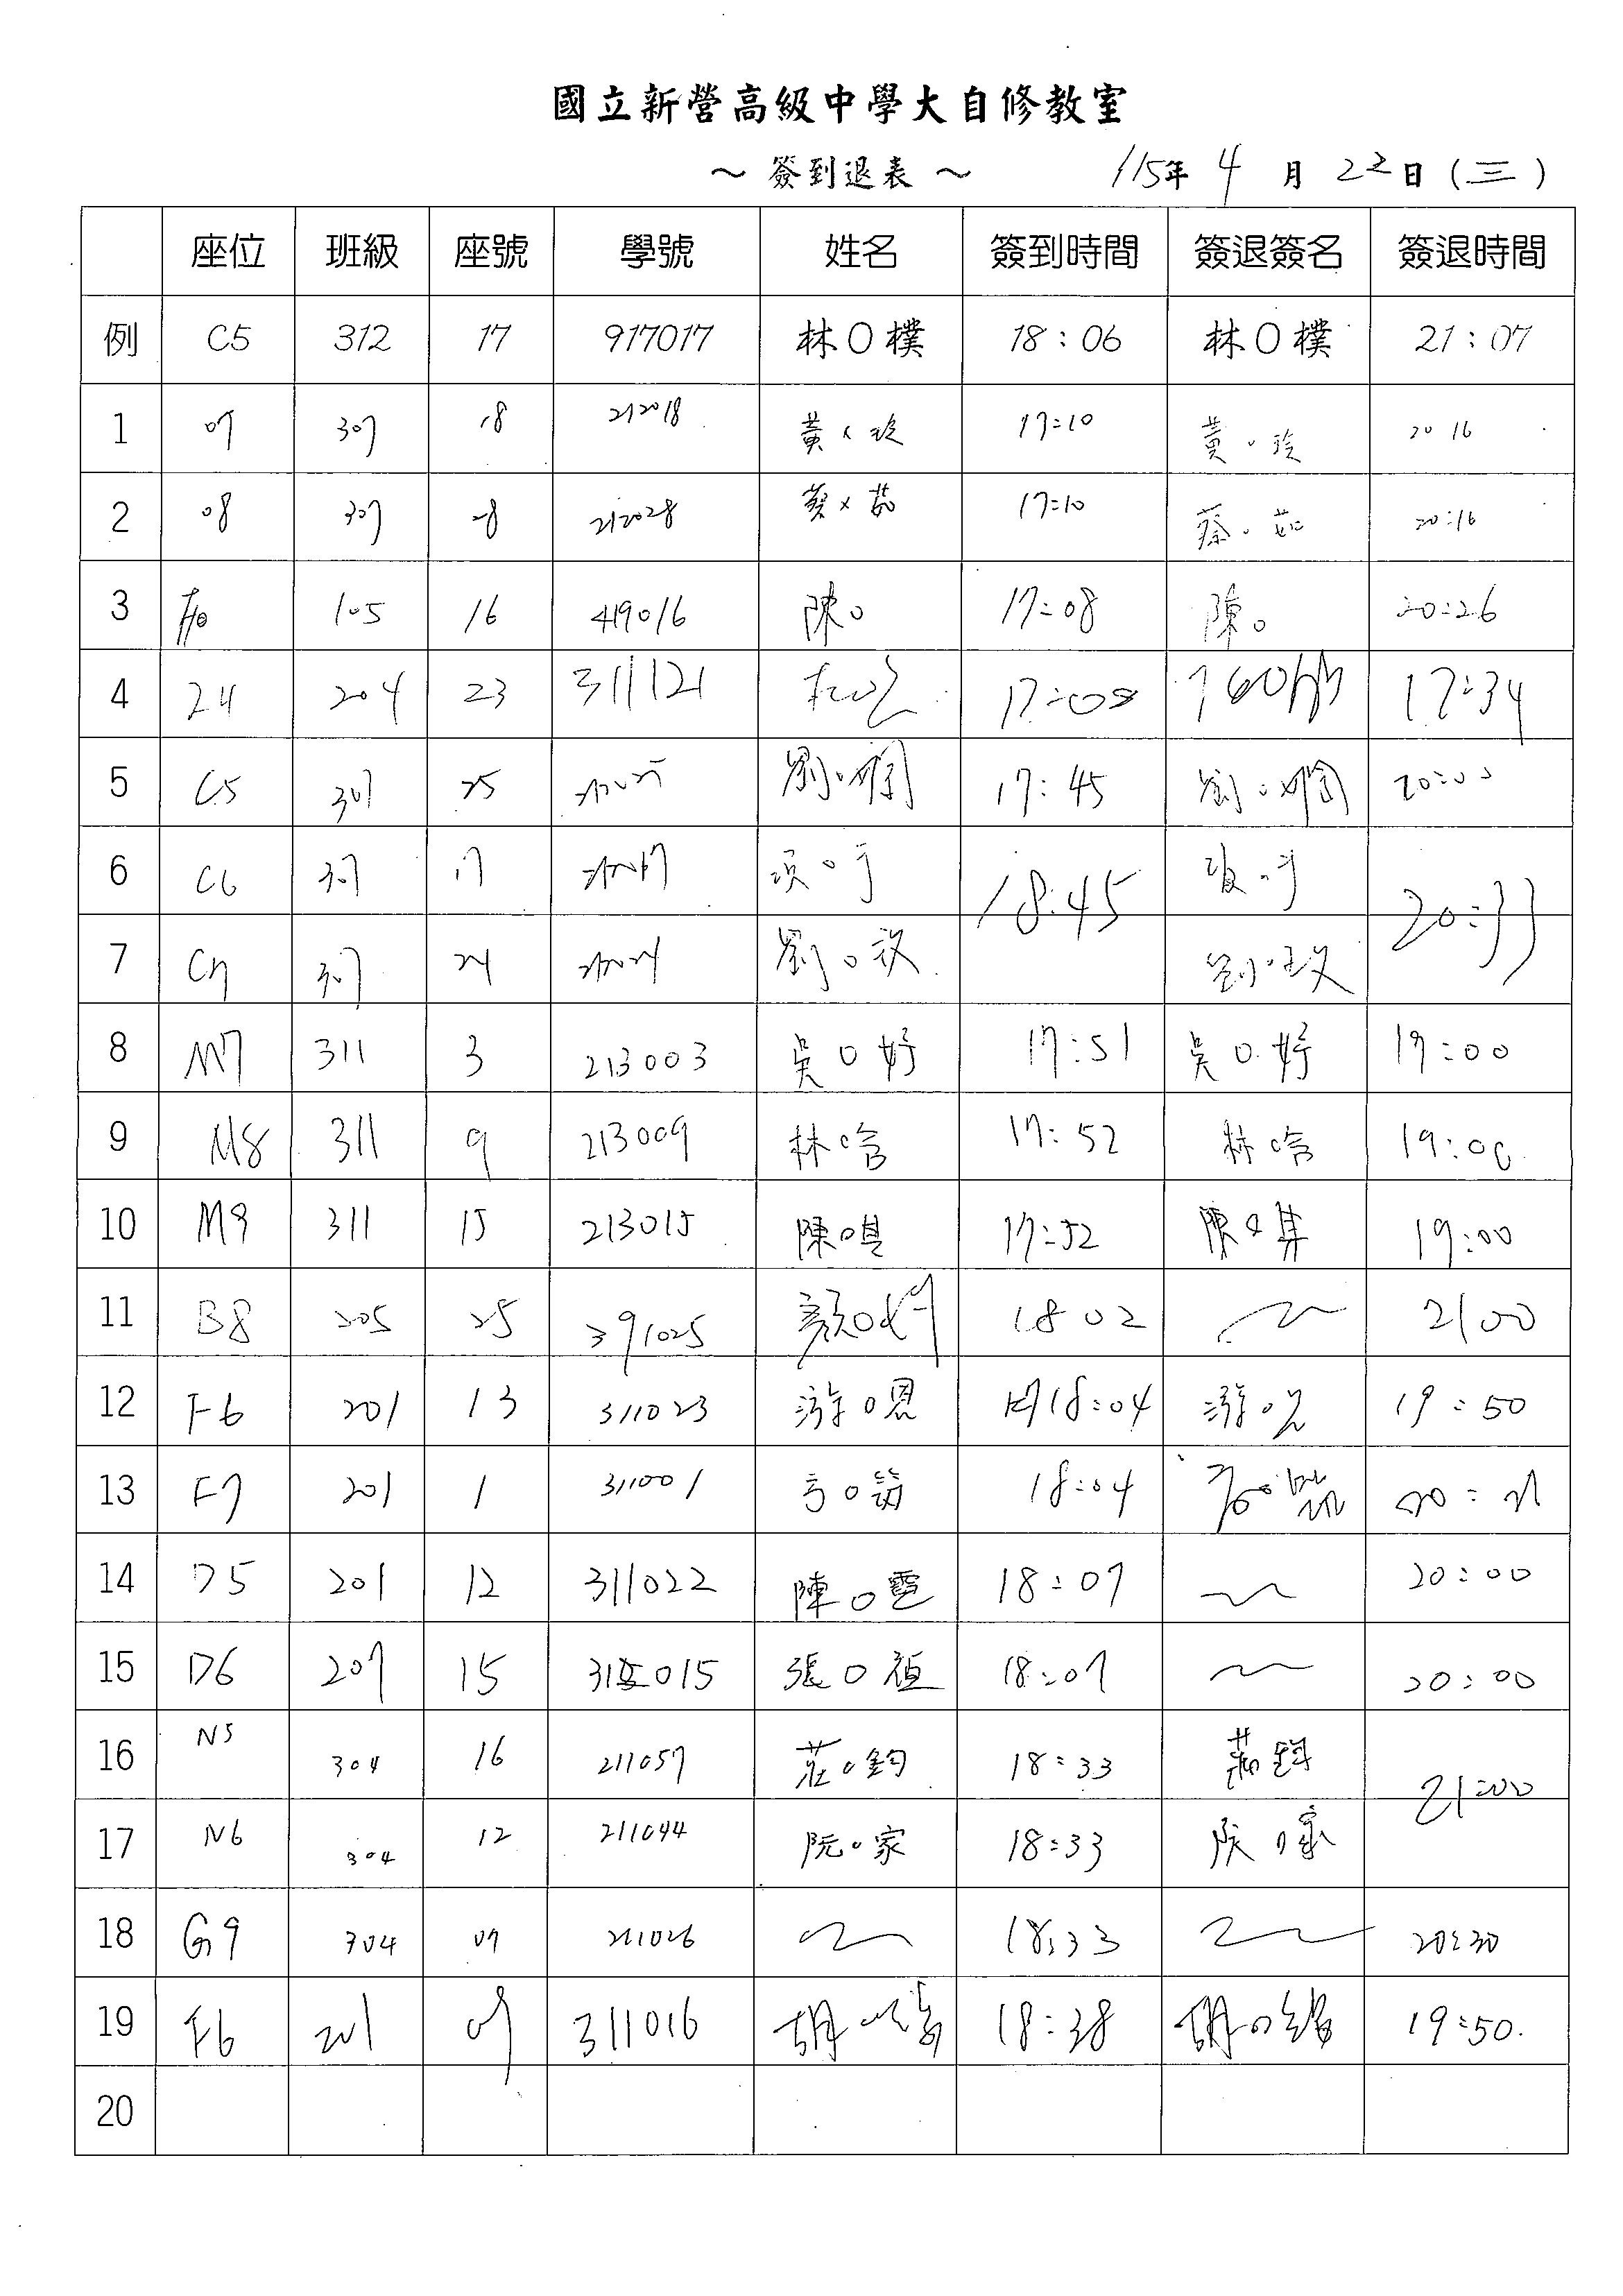 國立新營高級中學大自修教室
～ 簽到退表 ～ 115年 4 月 22日 (三)
座位 班級 座號 學號 姓名 簽到時間 簽退簽名 簽退時間
例 C5 312 17 917017 林〇樸 18:06 林〇樸 21:07
1 07 307 18 212018 黃 玲 17:10 黃 玲 20 16
2 08 307 28 212028 蔡 茹 17:10 蔡 茹 20:16
3 105 16 419016 陳〇 17:08 陳〇 20:26
4 24 204 23 311121 17:08 17:34
5 C5 307 25 212025 劉〇嫻 17:45 劉〇嫻 20:00
6 C6 307 17 212017 18:45 20:33
7 C7 307 24 212024 劉〇 劉〇
8 M7 311 3 213003 吳〇妤 17:51 吳〇妤 19:00
9 M8 311 9 213009 林〇含 17:52 林〇含 19:00
10 M9 311 15 213015 陳〇 17:52 陳〇 19:00
11 B8 205 25 391025 顏〇 18 02 21 00
12 F6 201 13 311023 游〇恩 18:04 游〇 19:50
13 F7 201 1 311001 18:04 20:21
14 D5 201 12 311022 陳〇霓 18:07 20:00
15 D6 207 15 015 張〇 18:07 20:00
16 N5 304 16 211057 莊〇鈞 18:33 21:00
17 N6 304 12 211044 阮〇家 18:33 阮〇家
18 G9 304 07 211026 18:33 20:30
19 F6 201 09 311016 胡〇 18:38 胡〇 19:50
20